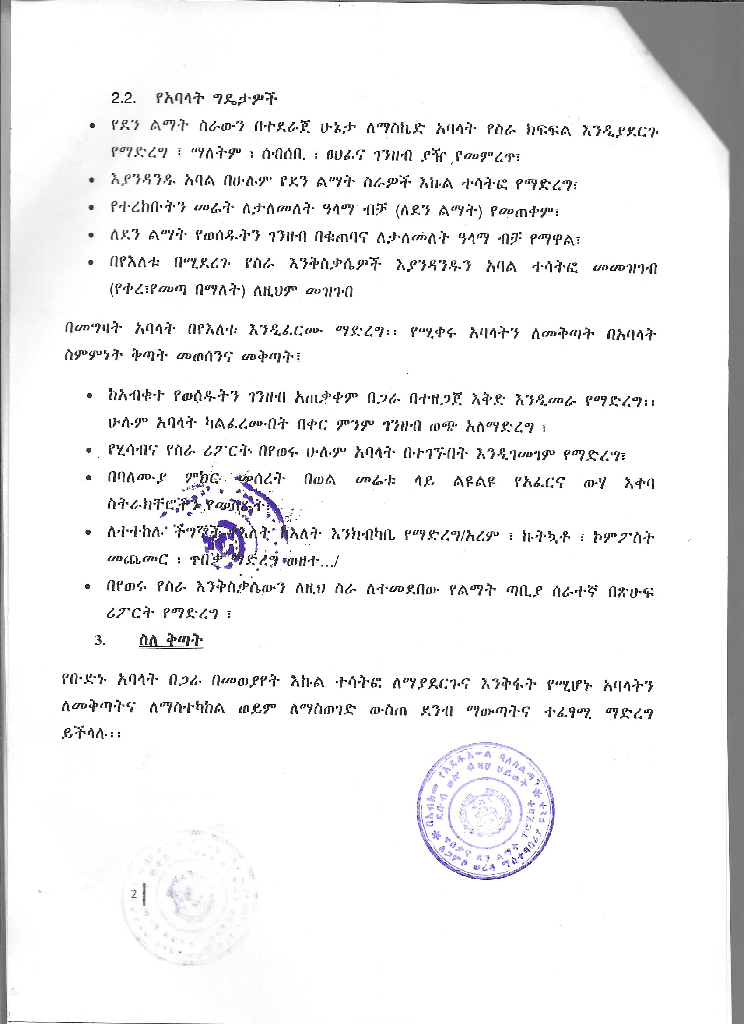 2.2. የአባላት ግዴታዎች
• የደን ልማት ስራውን በተደራጀ ሁኔታ ለማስኬድ አባላት የስራ ክፍፍል እንዲያደርጉ
የማድረግ ፣ ማለትም ፣ ሰብሰቢ ፣ ፀሀፊና ገንዘብ ያዥ የመምረጥ፣
• እያንዳንዱ አባል በሁሉም የደን ልማት ስራዎች እኩል ተሳትፎ የማድረግ፣
• የተረከቡትን መሬት ለታለመለት ዓላማ ብቻ (ለደን ልማት) የመጠቀም፣
• ለደን ልማት የወሰዱትን ገንዘብ በቁጠባና ለታለመለት ዓላማ ብቻ የማዋል፣
• በየእለቱ በሚደረጉ የስራ እንቅስቃሴዎች እያንዳንዱን አባል ተሳትፎ መመዝገብ
(የቀረ፣የመጣ በማለት) ለዚህም መዝገብ
በመግዛት አባላት በየእለቱ እንዲፈርሙ ማድረግ፡፡ የሚቀሩ አባላትን ለመቅጣት በአባላት
ስምምነት ቅጣት መወሰንና መቅጣት፣
• ከአብቁተ የወሰዱትን ገንዘብ አጠቃቀም በጋራ በተዘጋጀ እቅድ እንዲመራ የማድረግ፡፡
ሁሉም አባላት ካልፈረሙበት በቀር ምንም ገንዘብ ወጭ አለማድረግ ፣
• የሂሳብና የስራ ሪፖርት በየወሩ ሁሉም አባላት በተገኙበት እንዲገመገም የማድረግ፣
• በባለሙያ ምክር መሰረት በወል መሬቱ ላይ ልዩልዩ የአፈርና ውሃ እቀባ
ስትራክቸሮችን
• ለተተከሉ ችግኞች ከእለት እንክብካቤ የማድረግ/አረም ፣ ኩትኳቶ ፣ ኮምፖስት
መጨመር ፣ ጥበቃ ማድረግ ወዘተ.../
• በየወሩ የስራ እንቅስቃሴውን ለዚህ ስራ ለተመደበው የልማት ጣቢያ ሰራተኛ በጽሁፍ
ሪፖርት የማድረግ ፣
3. ስለ ቅጣት
የቡድኑ አባላት በጋራ በመወያየት እኩል ተሳትፎ ለማያደርጉና እንቅፋት የሚሆኑ አባላትን
ለመቅጣትና ለማስተካከል ወይም ለማስወገድ ውስጠ ደንብ ማውጣትና ተፈፃሚ ማድረግ
ይችላሉ፡፡
2